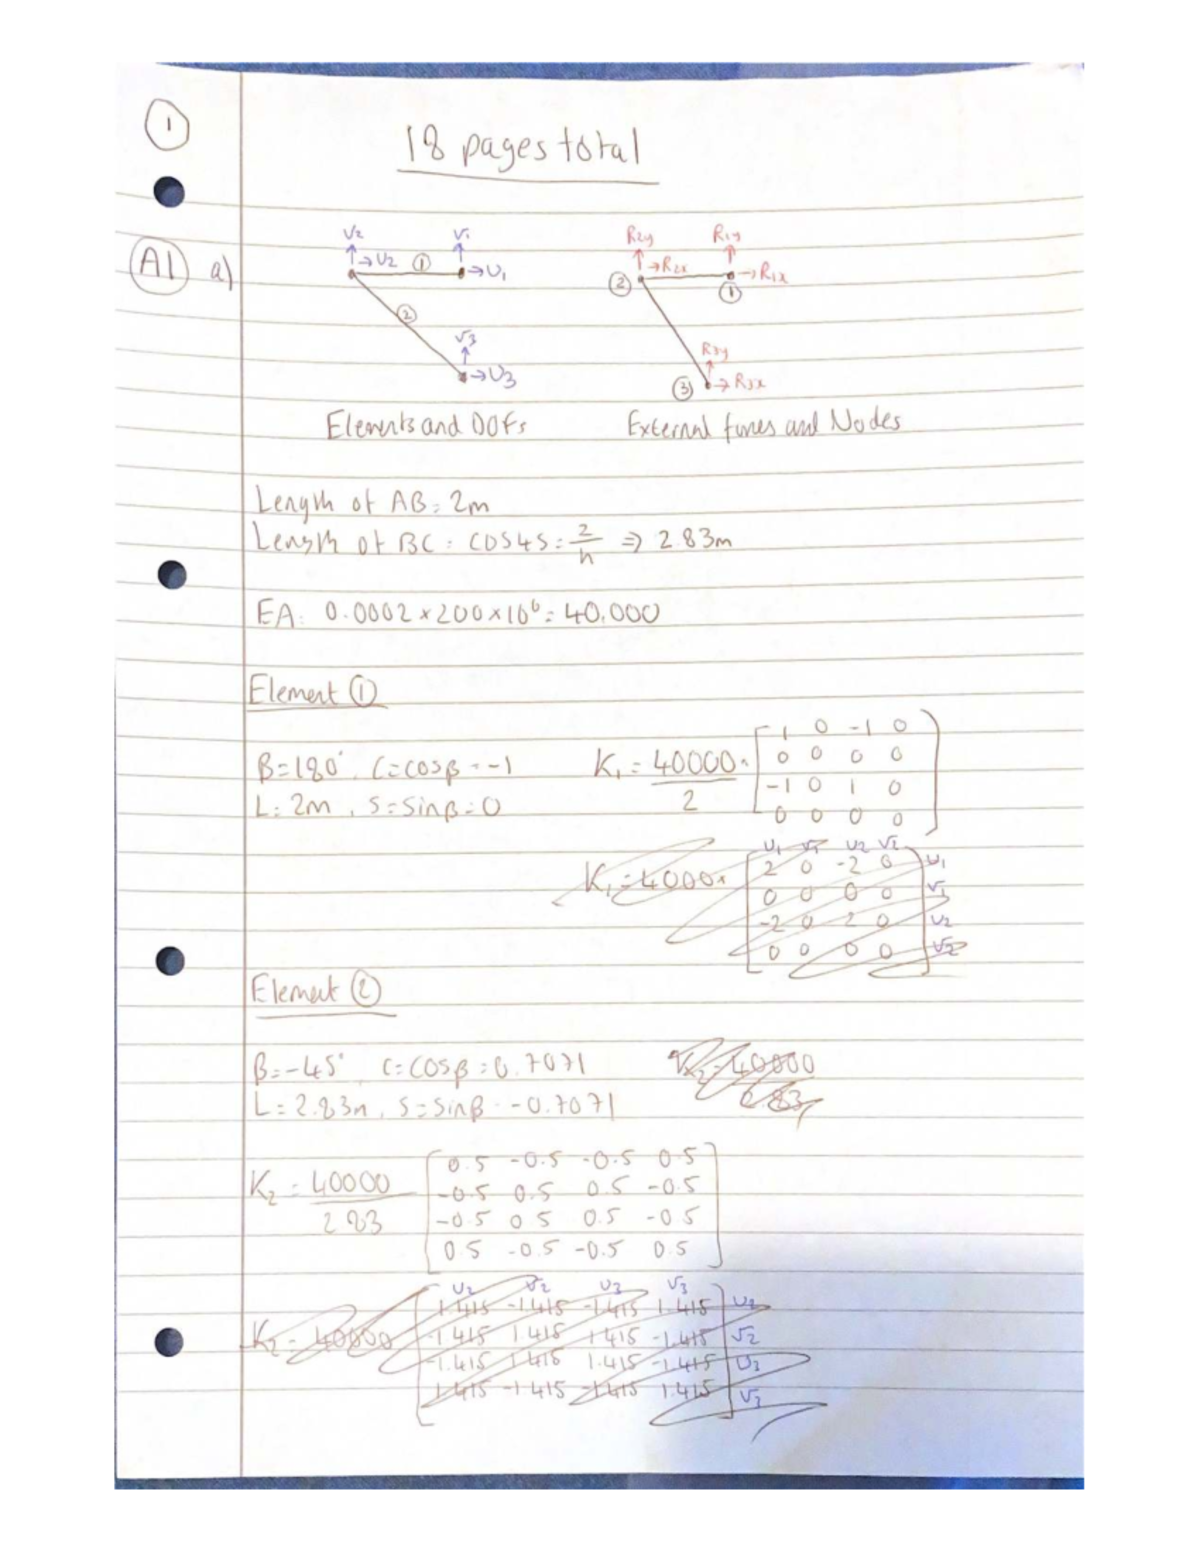 1
18 pages total
A1 a)
V2 V1 R2y R1y
→U2 1 →U1 2 →R2x →R1x
1
2 V3 R3y
→U3 3 →R3x
Elements and DOFs External forces and Nodes
Length of AB = 2m
Length of BC = COS45 = 2/h ⇒ 2.83m
EA = 0.0002 × 200×10⁶ = 40,000
Element 1
β=180°, C=cosβ = -1 K1 = 40000/2 ×
L = 2m, S=Sinβ=0
1 0 -1 0
0 0 0 0
-1 0 1 0
0 0 0 0
K1 = 4000×
U1 V1 U2 V2
2 0 -2 0 U1
0 0 0 0 V1
-2 0 2 0 U2
0 0 0 0 V2
Element 2
β=-45° C=COSβ=0.7071 K2 = 40000/2.83
L=2.83m, S=Sinβ = -0.7071
K2 = 40000/2.83
0.5 -0.5 -0.5 0.5
-0.5 0.5 0.5 -0.5
-0.5 0.5 0.5 -0.5
0.5 -0.5 -0.5 0.5
K2 = 40000
U2 V2 U3 V3
1.415 -1.415 -1.415 1.415 U2
-1.415 1.415 1.415 -1.415 V2
-1.415 1.415 1.415 -1.415 U3
1.415 -1.415 -1.415 1.415 V3